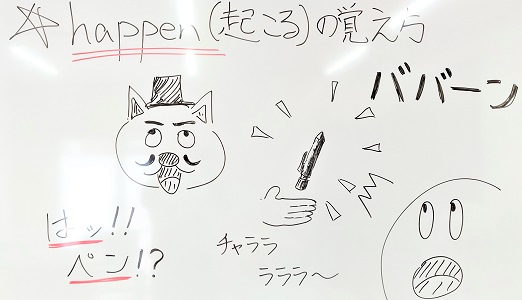 ☆ happen(起こる)の覚え方
ババーン
はッ!!
ペン!?
チャララ
ラララ〜